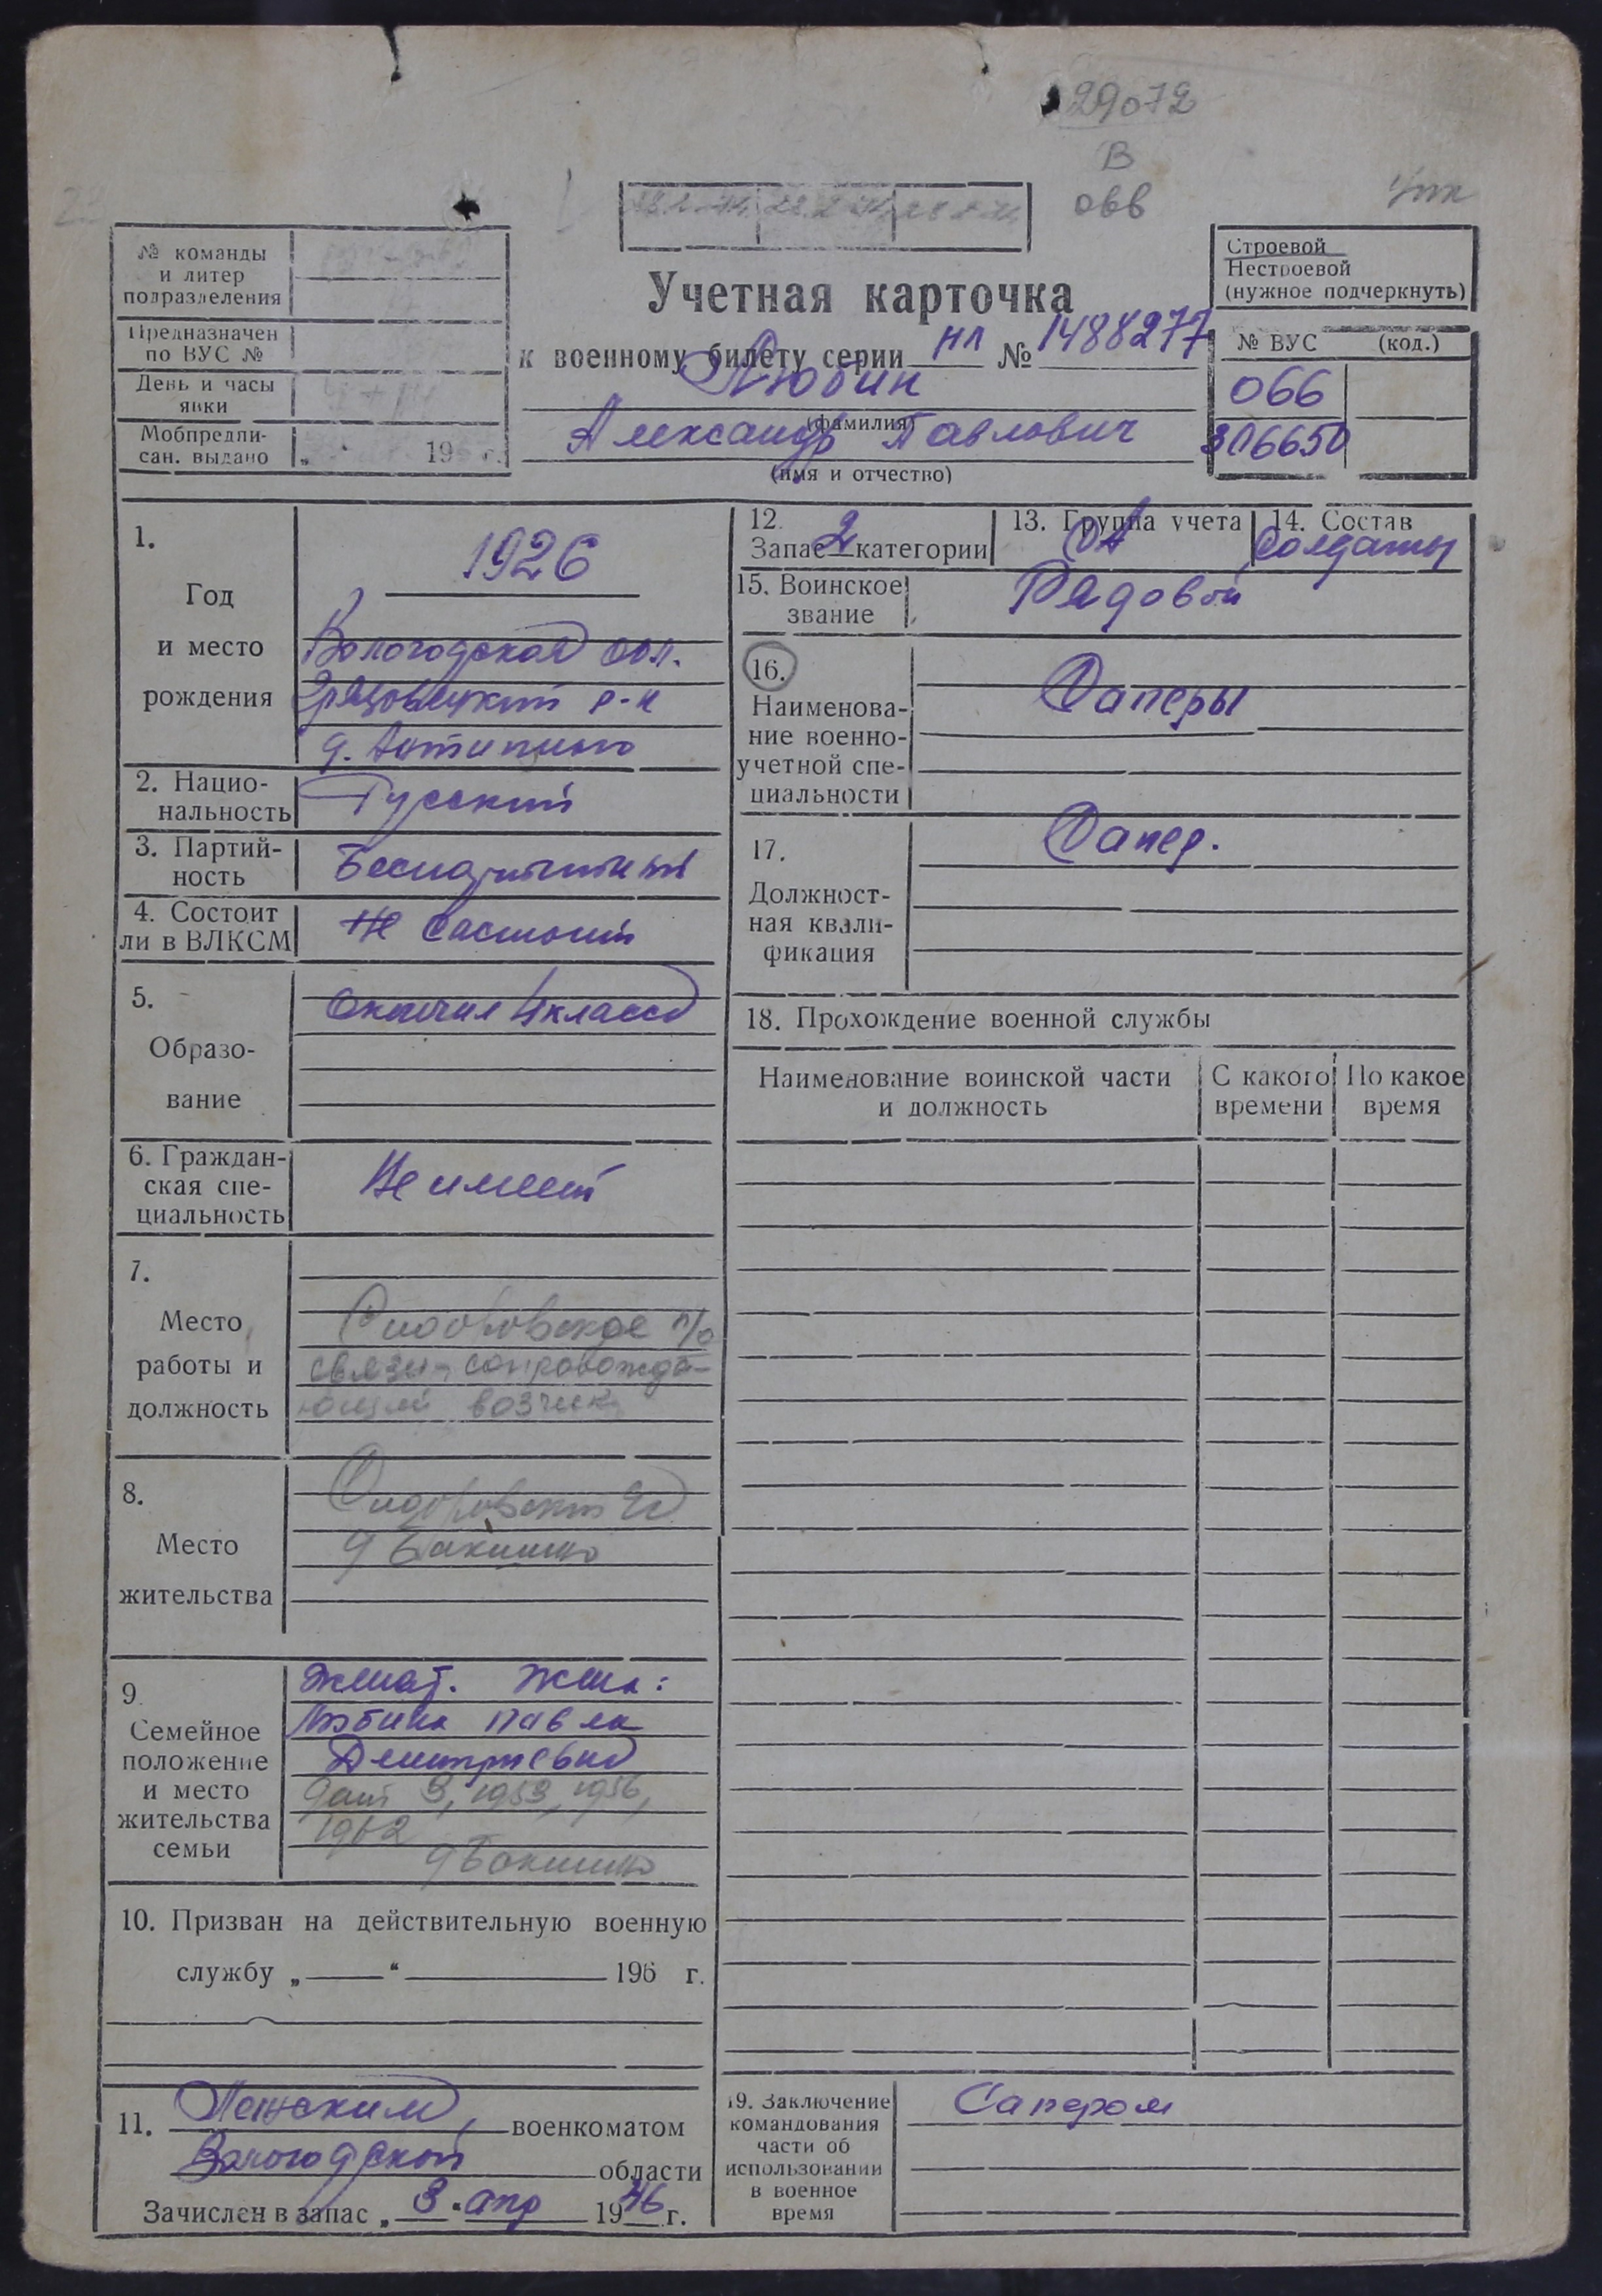 29072
В
066
№ команды
и литер
подразделения
Предназначен
по ВУС №
День и часы
явки
Мобпредпи-
сан. выдано „ 196 г.
Учетная карточка
к военному билету серии НЛ № 1488277
Любин
(фамилия)
Александр Павлович
(имя и отчество)
Строевой
Нестроевой
(нужное подчеркнуть)
№ ВУС (код.)
066
306650
1.
Год
и место
рождения
1926
Вологодская обл.
Грязовецкий р-н
2. Нацио-
нальность Русский
3. Партий-
ность Беспартийный
4. Состоит
ли в ВЛКСМ Не состоит
5.
Образо-
вание
Окончил 4 класса
6. Граждан-
ская спе-
циальность
Не имеет
7.
Место
работы и
должность
Сидоровское п/о
связи сопровожда-
ющий возчик
8.
Место
жительства
Сидоровский
9.
Семейное
положение
и место
жительства
семьи
Женат. Жена:
Любина Павла
Дмитриевна
1953, 1956,
1962
10. Призван на действительную военную
службу „ “ 196 г.
11. военкоматом
Вологодской области
Зачислен в запас „ 3 “ апр 1946 г.
12.
Запас 2 категории
13. Группа учета
СА
14. Состав
Солдаты
15. Воинское
звание
Рядовой
16.
Наименова-
ние военно-
учетной спе-
циальности
Саперы
17.
Должност-
ная квали-
фикация
Сапер.
18. Прохождение военной службы
Наименование воинской части
и должность
С какого
времени
По какое
время
19. Заключение
командования
части об
использовании
в военное
время
Сапером